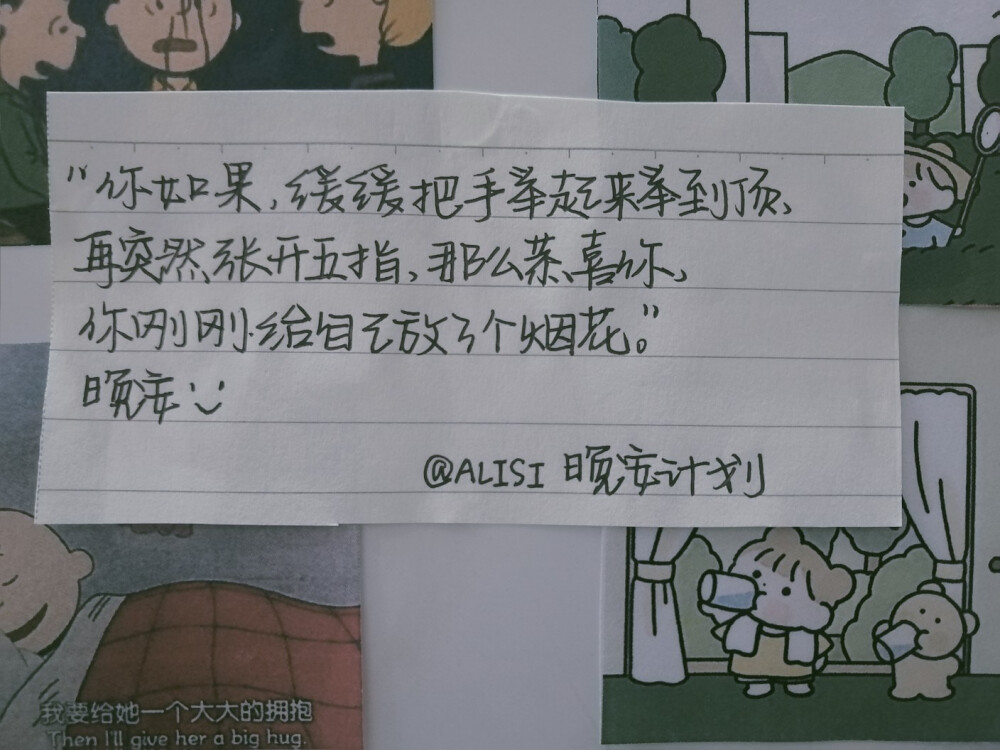 “你如果,缓缓把手举起来举到顶,
再突然张开五指,那么恭喜你,
你刚刚给自己放了个烟花。”
晚安:)
@ALISI 晚安计划
我要给她一个大大的拥抱
Then I'll give her a big hug.